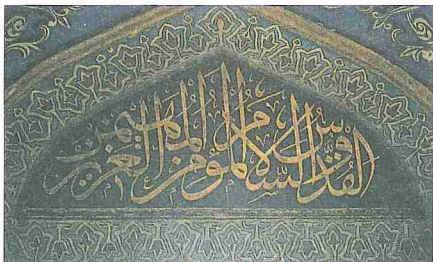 القدوس السلام المؤمن المهيمن العزيز